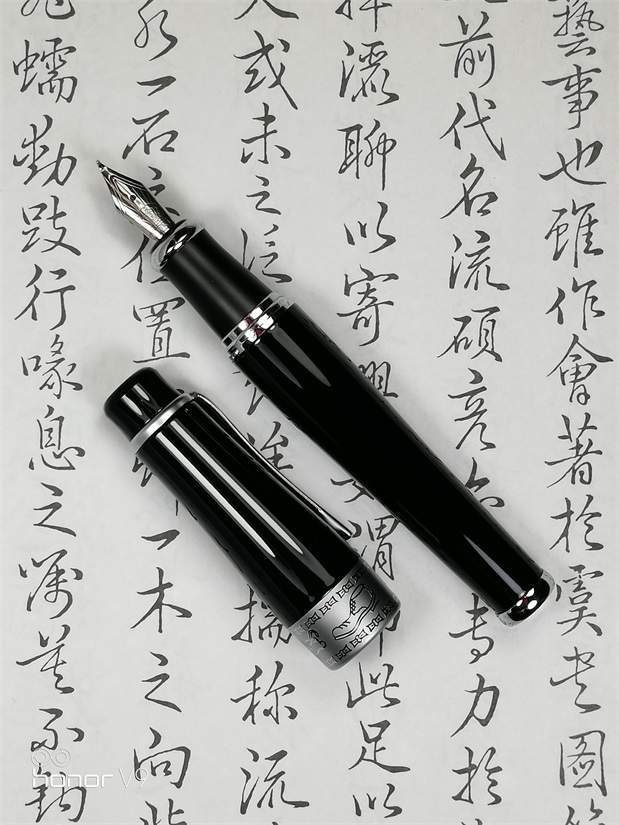 藝事也雖作會著於虞書圖
前代名流碩彥專力於
灑聊以寄興謂此足以
或未之泛誰揣称流
水一石之位置一木之向
蠕動跂行喙息之属莫不鈞
honor V9